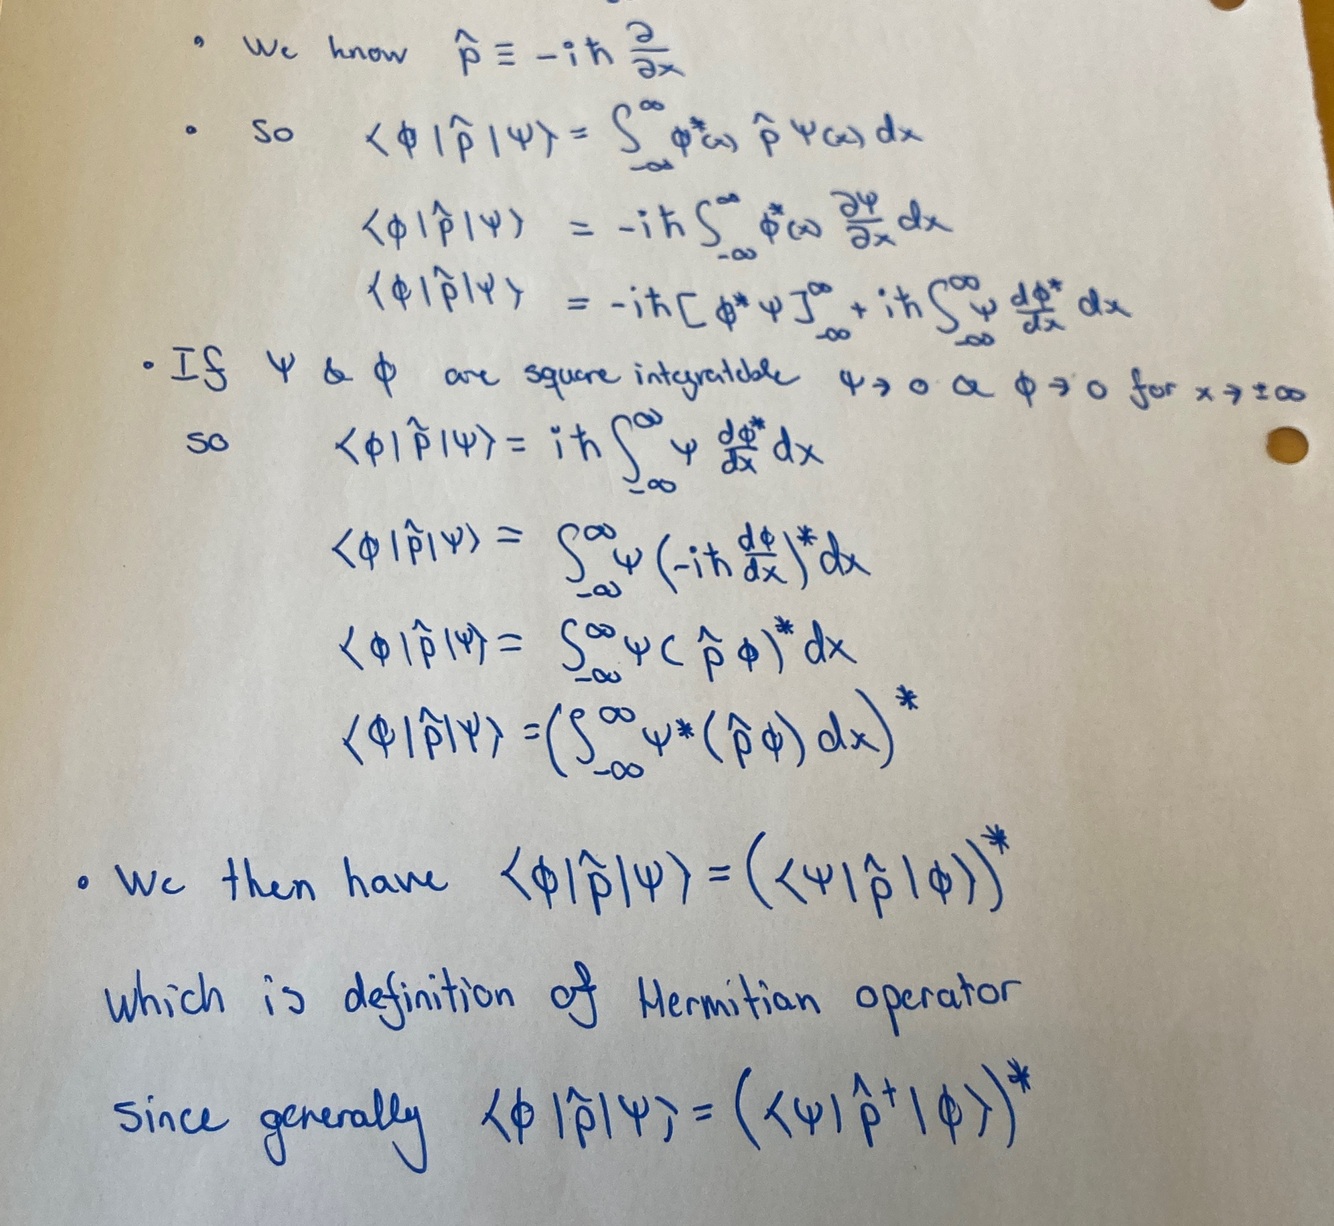 • We know p̂ ≡ -iħ ∂/∂x
• so ⟨ϕ|p̂|ψ⟩ = ∫_{-∞}^{∞} ϕ*(x) p̂ ψ(x) dx
⟨ϕ|p̂|ψ⟩ = -iħ ∫_{-∞}^{∞} ϕ*(x) ∂ψ/∂x dx
⟨ϕ|p̂|ψ⟩ = -iħ [ϕ* ψ]_{-∞}^{∞} + iħ ∫_{-∞}^{∞} ψ dϕ*/dx dx
• If ψ & ϕ are square integratable ψ → 0 & ϕ → 0 for x → ±∞
so ⟨ϕ|p̂|ψ⟩ = iħ ∫_{-∞}^{∞} ψ dϕ*/dx dx
⟨ϕ|p̂|ψ⟩ = ∫_{-∞}^{∞} ψ (-iħ dϕ/dx)* dx
⟨ϕ|p̂|ψ⟩ = ∫_{-∞}^{∞} ψ (p̂ ϕ)* dx
⟨ϕ|p̂|ψ⟩ = (∫_{-∞}^{∞} ψ* (p̂ ϕ) dx)*
• We then have ⟨ϕ|p̂|ψ⟩ = (⟨ψ|p̂|ϕ⟩)*
which is definition of Hermitian operator
since generally ⟨ϕ|p̂|ψ⟩ = (⟨ψ|p̂†|ϕ⟩)*